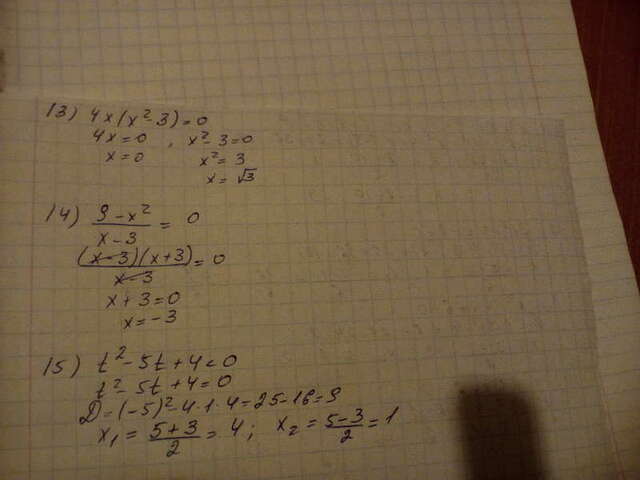 13) 4x(x²-3)=0
4x=0 , x²-3=0
x=0 x²=3
x=√3
14) (9-x²)/(x-3) = 0
((x-3)(x+3))/(x-3) = 0
x+3=0
x=-3
15) t²-5t+4<0
t²-5t+4=0
D=(-5)²-4·1·4=25-16=9
x₁ = (5+3)/2 = 4; x₂ = (5-3)/2 = 1